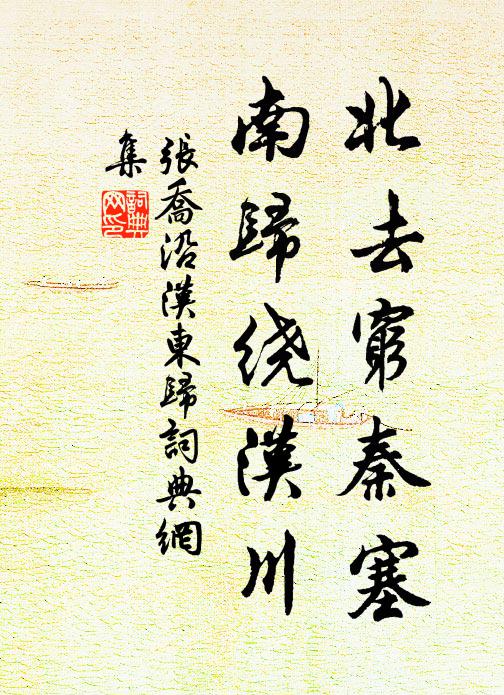 北去窮秦塞
南歸绕漢川
張喬沿漢東歸詞典網
集
詞典
网印